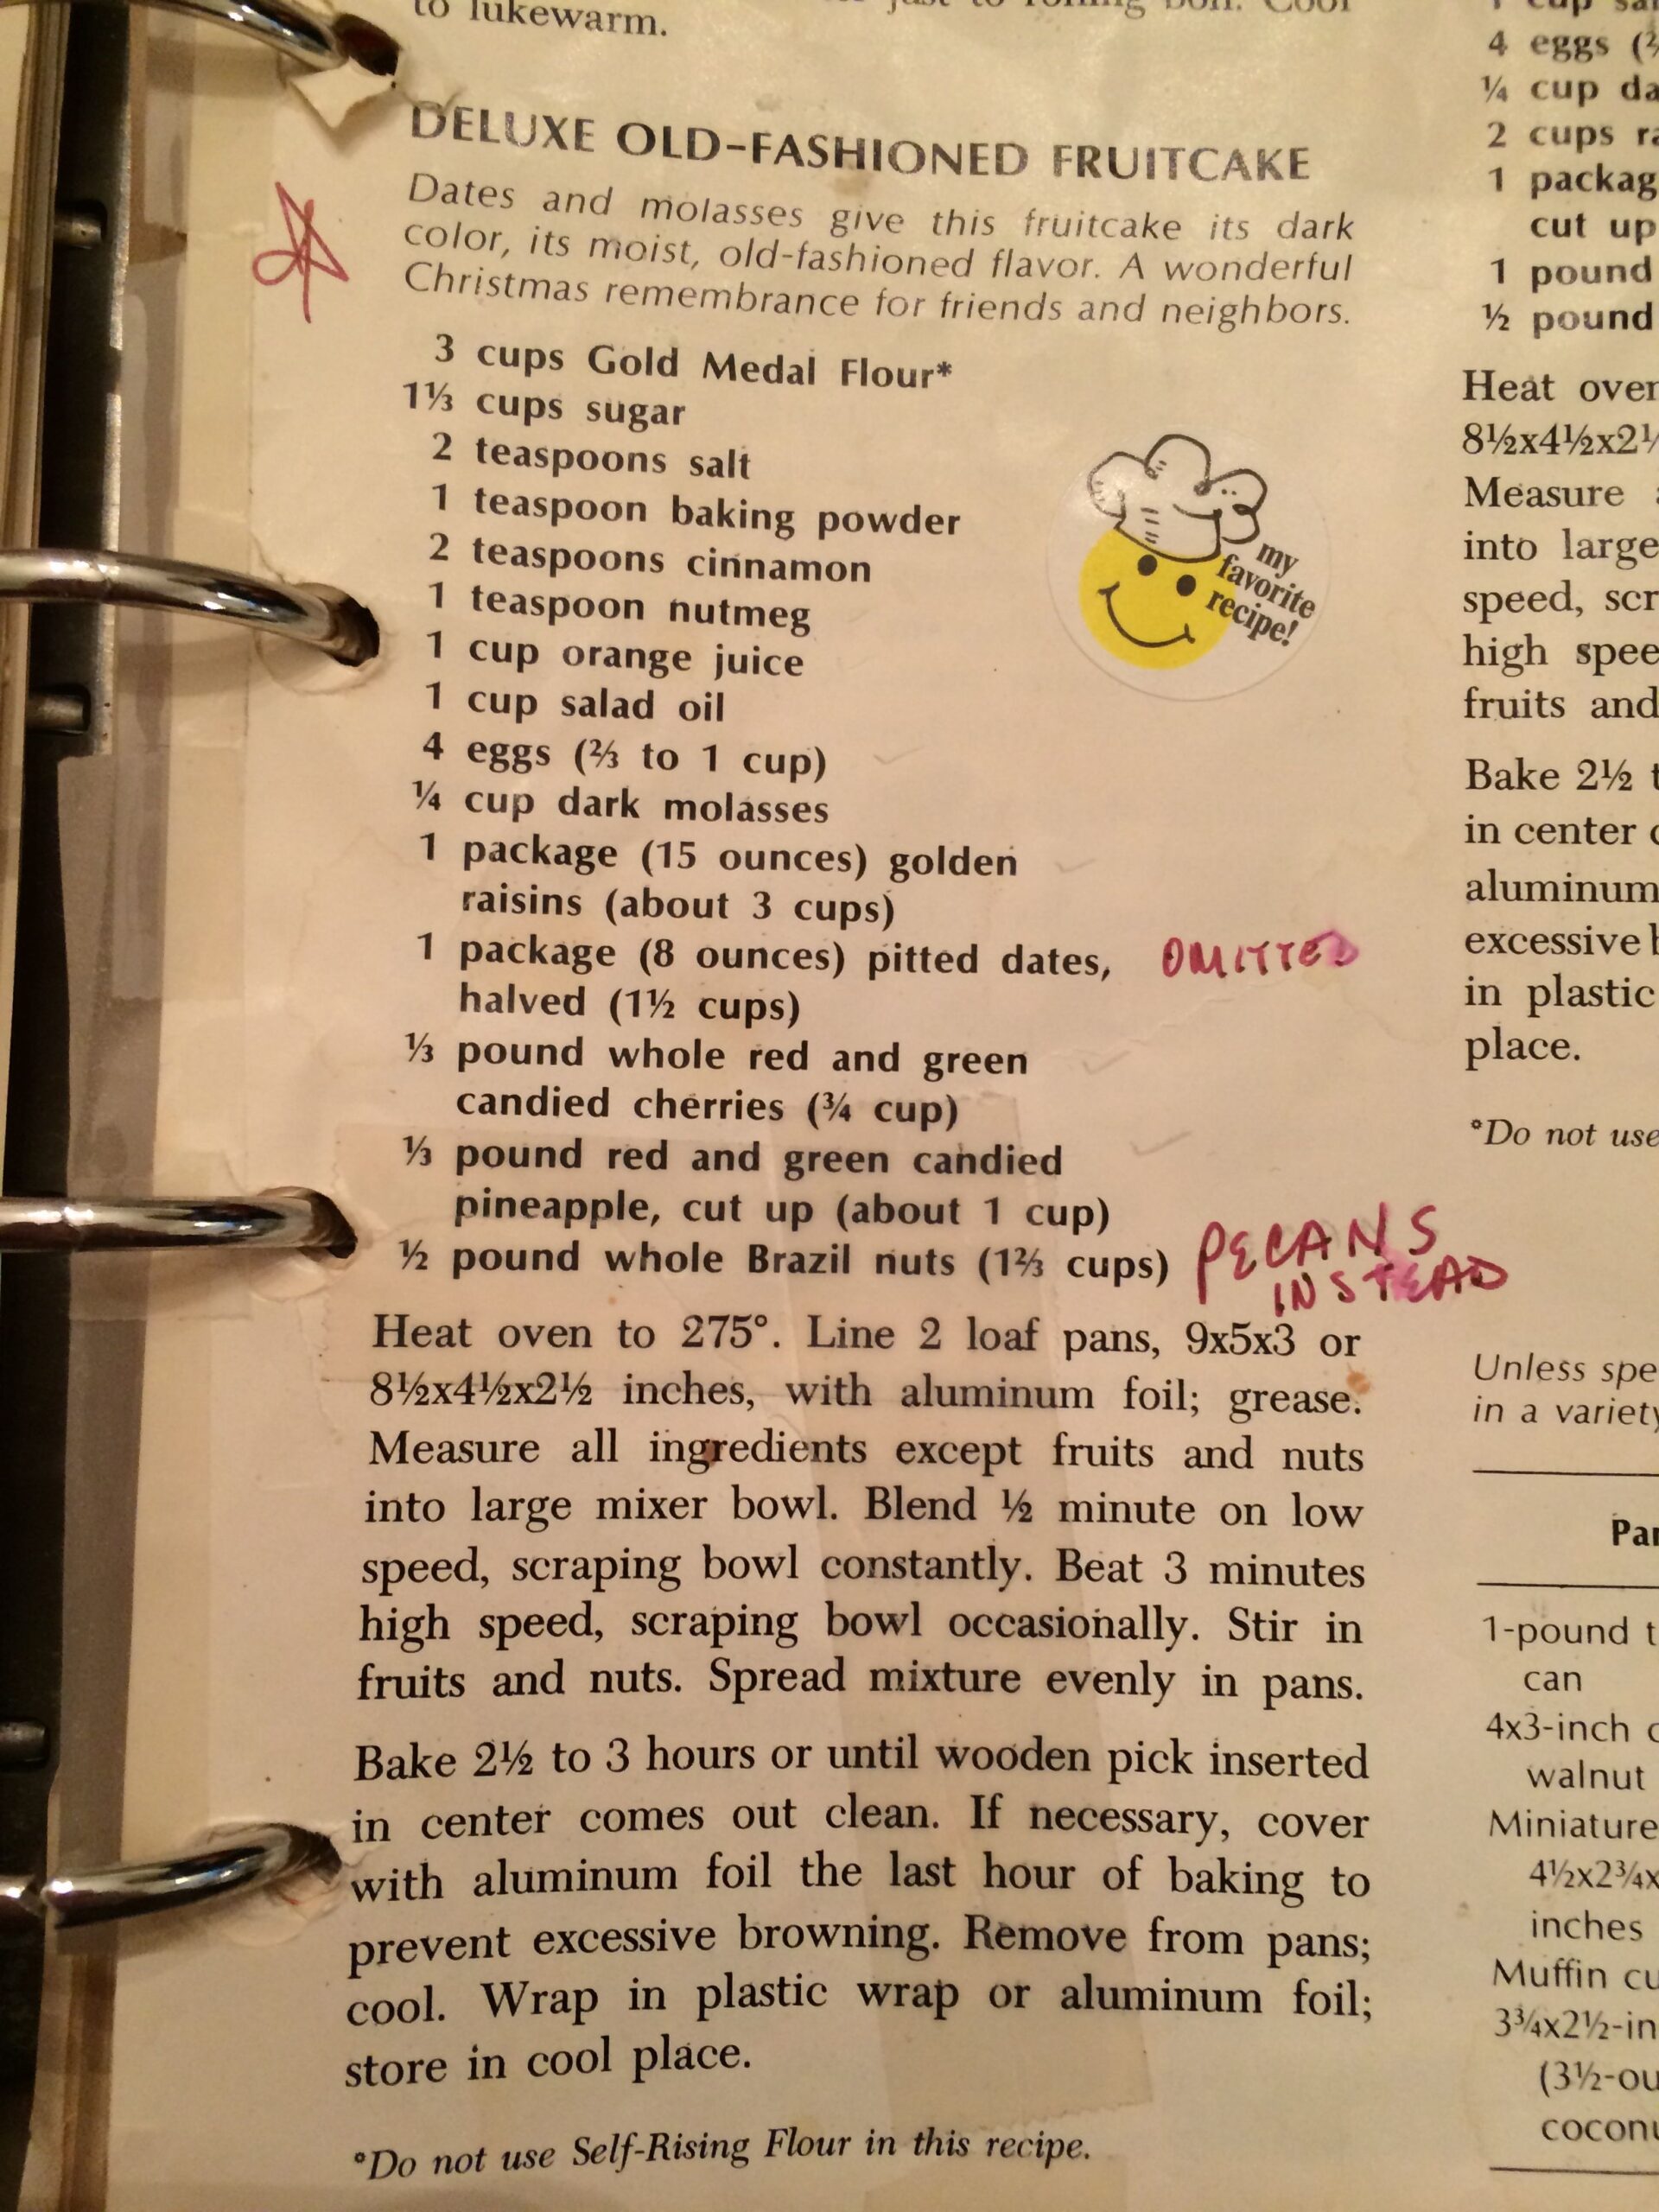 to lukewarm.
DELUXE OLD-FASHIONED FRUITCAKE
Dates and molasses give this fruitcake its dark
color, its moist, old-fashioned flavor. A wonderful
Christmas remembrance for friends and neighbors.
3 cups Gold Medal Flour*
1⅓ cups sugar
2 teaspoons salt
1 teaspoon baking powder
2 teaspoons cinnamon
1 teaspoon nutmeg
1 cup orange juice
1 cup salad oil
4 eggs (⅔ to 1 cup)
¼ cup dark molasses
1 package (15 ounces) golden
raisins (about 3 cups)
1 package (8 ounces) pitted dates, OMITTED
halved (1½ cups)
⅓ pound whole red and green
candied cherries (¾ cup)
⅓ pound red and green candied
pineapple, cut up (about 1 cup)
½ pound whole Brazil nuts (1⅔ cups) PECANS
INSTEAD
my
favorite
recipe!
Heat oven to 275°. Line 2 loaf pans, 9x5x3 or
8½x4½x2½ inches, with aluminum foil; grease.
Measure all ingredients except fruits and nuts
into large mixer bowl. Blend ½ minute on low
speed, scraping bowl constantly. Beat 3 minutes
high speed, scraping bowl occasionally. Stir in
fruits and nuts. Spread mixture evenly in pans.
Bake 2½ to 3 hours or until wooden pick inserted
in center comes out clean. If necessary, cover
with aluminum foil the last hour of baking to
prevent excessive browning. Remove from pans;
cool. Wrap in plastic wrap or aluminum foil;
store in cool place.
*Do not use Self-Rising Flour in this recipe.
4 eggs
¼ cup
2 cups
1
cut up
1 pound
½ pound
Heat oven
8½x4½x2
Measure
into large
speed,
high
fruits and
Bake 2½
in center
aluminum
excessive
in plastic
place.
*Do not use
Unless
in a variety
1-pound
can
4x3-inch
walnut
Miniature
4½x2¾x
inches
Muffin
3¾x2½-in
(3½-